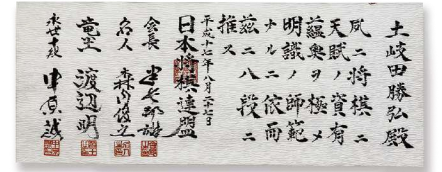 土岐田勝弘殿
夙ニ将棋ニ
天賦ノ資有
蘊奥ヲ極メ
明識ノ師範
ナルニ依而
茲ニ八段ニ
推ス
平成十七年八月二十七日
日本将棋連盟
会長 米長邦雄
名人 森内俊之
竜王 渡辺明
永世十段 中原誠